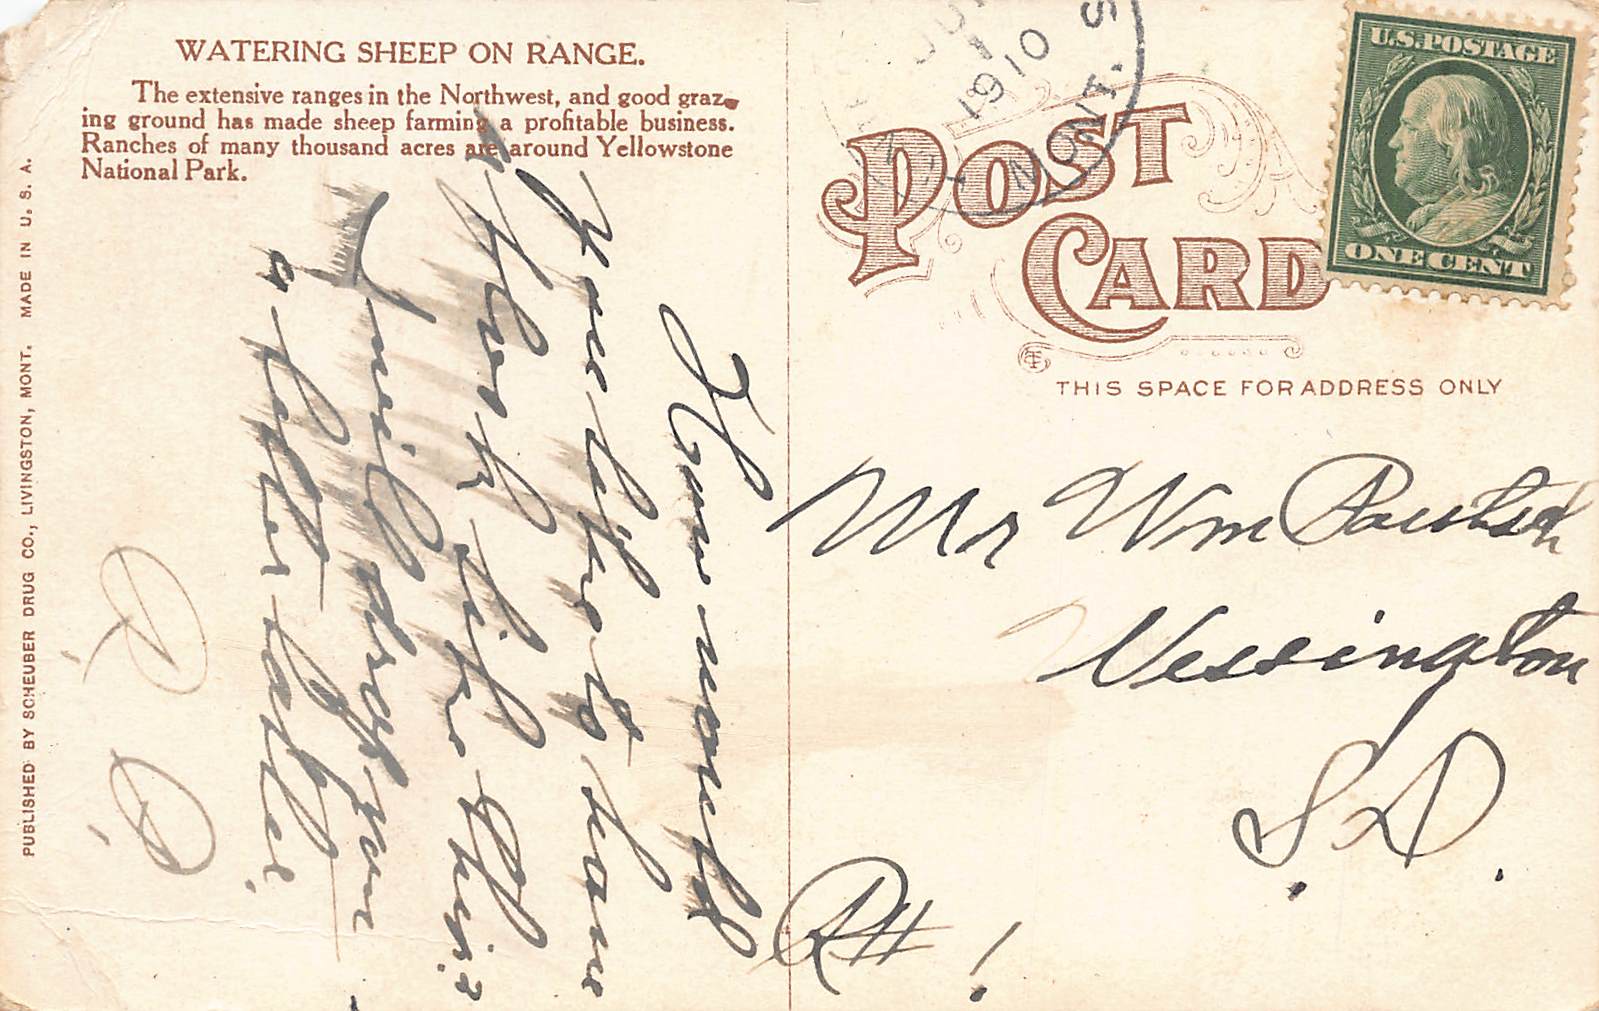 WATERING SHEEP ON RANGE.
The extensive ranges in the Northwest, and good graz-
ing ground has made sheep farming a profitable business.
Ranches of many thousand acres are around Yellowstone
National Park.
PUBLISHED BY SCHEUBER DRUG CO., LIVINGSTON, MONT. MADE IN U. S. A.
How would
you like to have
a flock like this?
I will drop you
a letter later.
R.
R.
1910
MONT.
U.S. POSTAGE
ONE CENT
POST
CARD
THIS SPACE FOR ADDRESS ONLY
Mr Wm
Wessington
S.D.